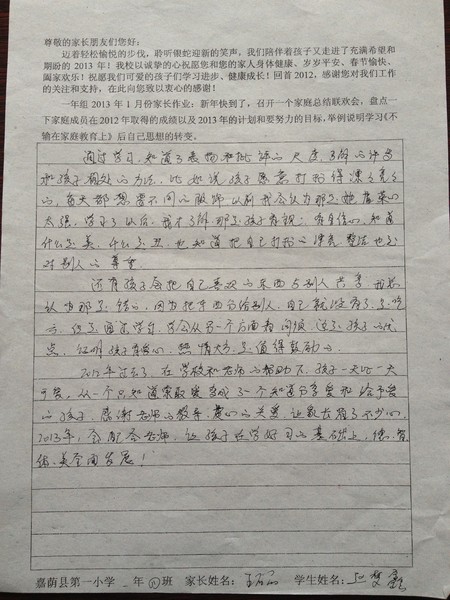 尊敬的家长朋友们您好:
迈着轻松愉悦的步伐,聆听银蛇迎新的笑声,我们陪伴着孩子又走进了充满希望和
期盼的 2013 年!我校以诚挚的心祝愿您和您的家人身体健康、岁岁平安、春节愉快、
阖家欢乐!祝愿我们可爱的孩子们学习进步、健康成长!回首 2012,感谢您对我们工作
的关注和支持,在此向您致以衷心的感谢!
一年组 2013 年 1 月份家长作业:新年快到了,召开一个家庭总结联欢会,盘点一
下家庭成员在 2012 年取得的成绩以及 2013 年的计划和要努力的目标,举例说明学习《不
输在家庭教育上》后自己思想的转变。
通过学习,知道了表扬和批评的尺度,了解
和孩子相处的方法,比如说孩子愿意打扮得漂漂亮亮
的,每天都想穿不同的服饰,以前我会认为那是她虚荣心
太强,学习了以后,我才了解那是孩子有自信心,知道
什么是美,什么是丑,也知道把自己打扮的漂亮整洁也是
对别人的尊重。
还有孩子会把自己喜欢的东西与别人共享,我
认为那是错的,因为把东西分给别人,自己就没有了,是吃
亏,经过学习,我会从另一个方面看问题,这是孩子的优
点,证明孩子有爱心,热情大方,是值得鼓励的。
2012年过去了,在学校和老师的帮助下,孩子一天比一天
可爱,从一个只知道索取爱变成了一个知道分享爱和给予爱
的孩子,感谢老师的教导,让我
2013年,会配合老师,让孩子在学好习的基础上,德、智、
体、美全面发展!
嘉荫县第一小学 一年 班 家长姓名: 学生姓名: